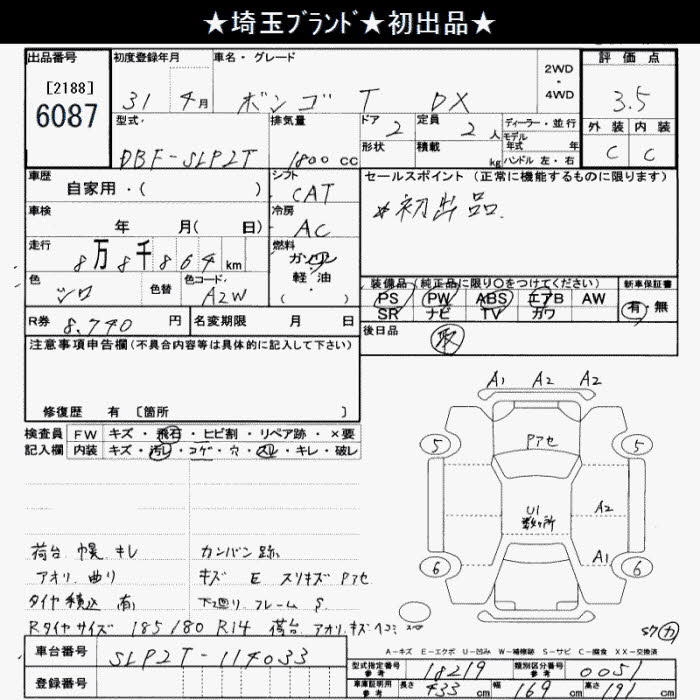 ★埼玉ﾌﾞﾗﾝﾄﾞ★初出品★
出品番号
[2188]
6087
初度登録年月
31 4月
車名・グレード
ボンゴ T DX
2WD・4WD
評価点
3.5
外装 内装
C C
型式
DBF-SLP2T
排気量
1800 cc
ドア 2
定員 2 人
形状
積載 kg
ディーラー・並行
モデル年式 年
ハンドル 左・右
車歴
自家用・( )
シフト
CAT
セールスポイント(正常に機能するものに限ります)
*初出品.
車検
年 月( 日)
冷房
AC
走行
8万8千864 km
燃料
ガソリン
軽・油
( )
色
シロ
色替
色コード
A2W
装備品(純正品に限り○をつけてください)
PS PW ABS エアB AW
SR ナビ TV カワ
新車保証書
有・無
R券 8,740 円
名変期限 月 日
後日品
取
注意事項申告欄(不具合内容等は具体的に記入して下さい)
修復歴 有 [箇所 ]
検査員記入欄
FW キズ・飛石・ヒビ割・リペア跡・×要
内装 キズ・汚レ・コゲ・穴・スレ・キレ・破レ
A1 A2 A2
5 5
Pアセ
U1
数ヶ所
A2
A1
6 6
荷台 幌 キレ カンバン跡
アオリ 曲り キズ E スリキズ Pアセ
タイヤ積込 有 下廻り フレーム S
Rタイヤサイズ 185/80 R14 荷台 アオリ キズヘコミ
S7 カ
車台番号
SLP2T-114033
登録番号
A-キズ E-エクボ U-凹み W-補修跡 S-サビ C-腐食 XX-交換済
型式指定番号 参考 18219
類別区分番号 参考 0051
車庫証明用 参考 長さ 433 cm 幅 169 cm 高さ 191 cm